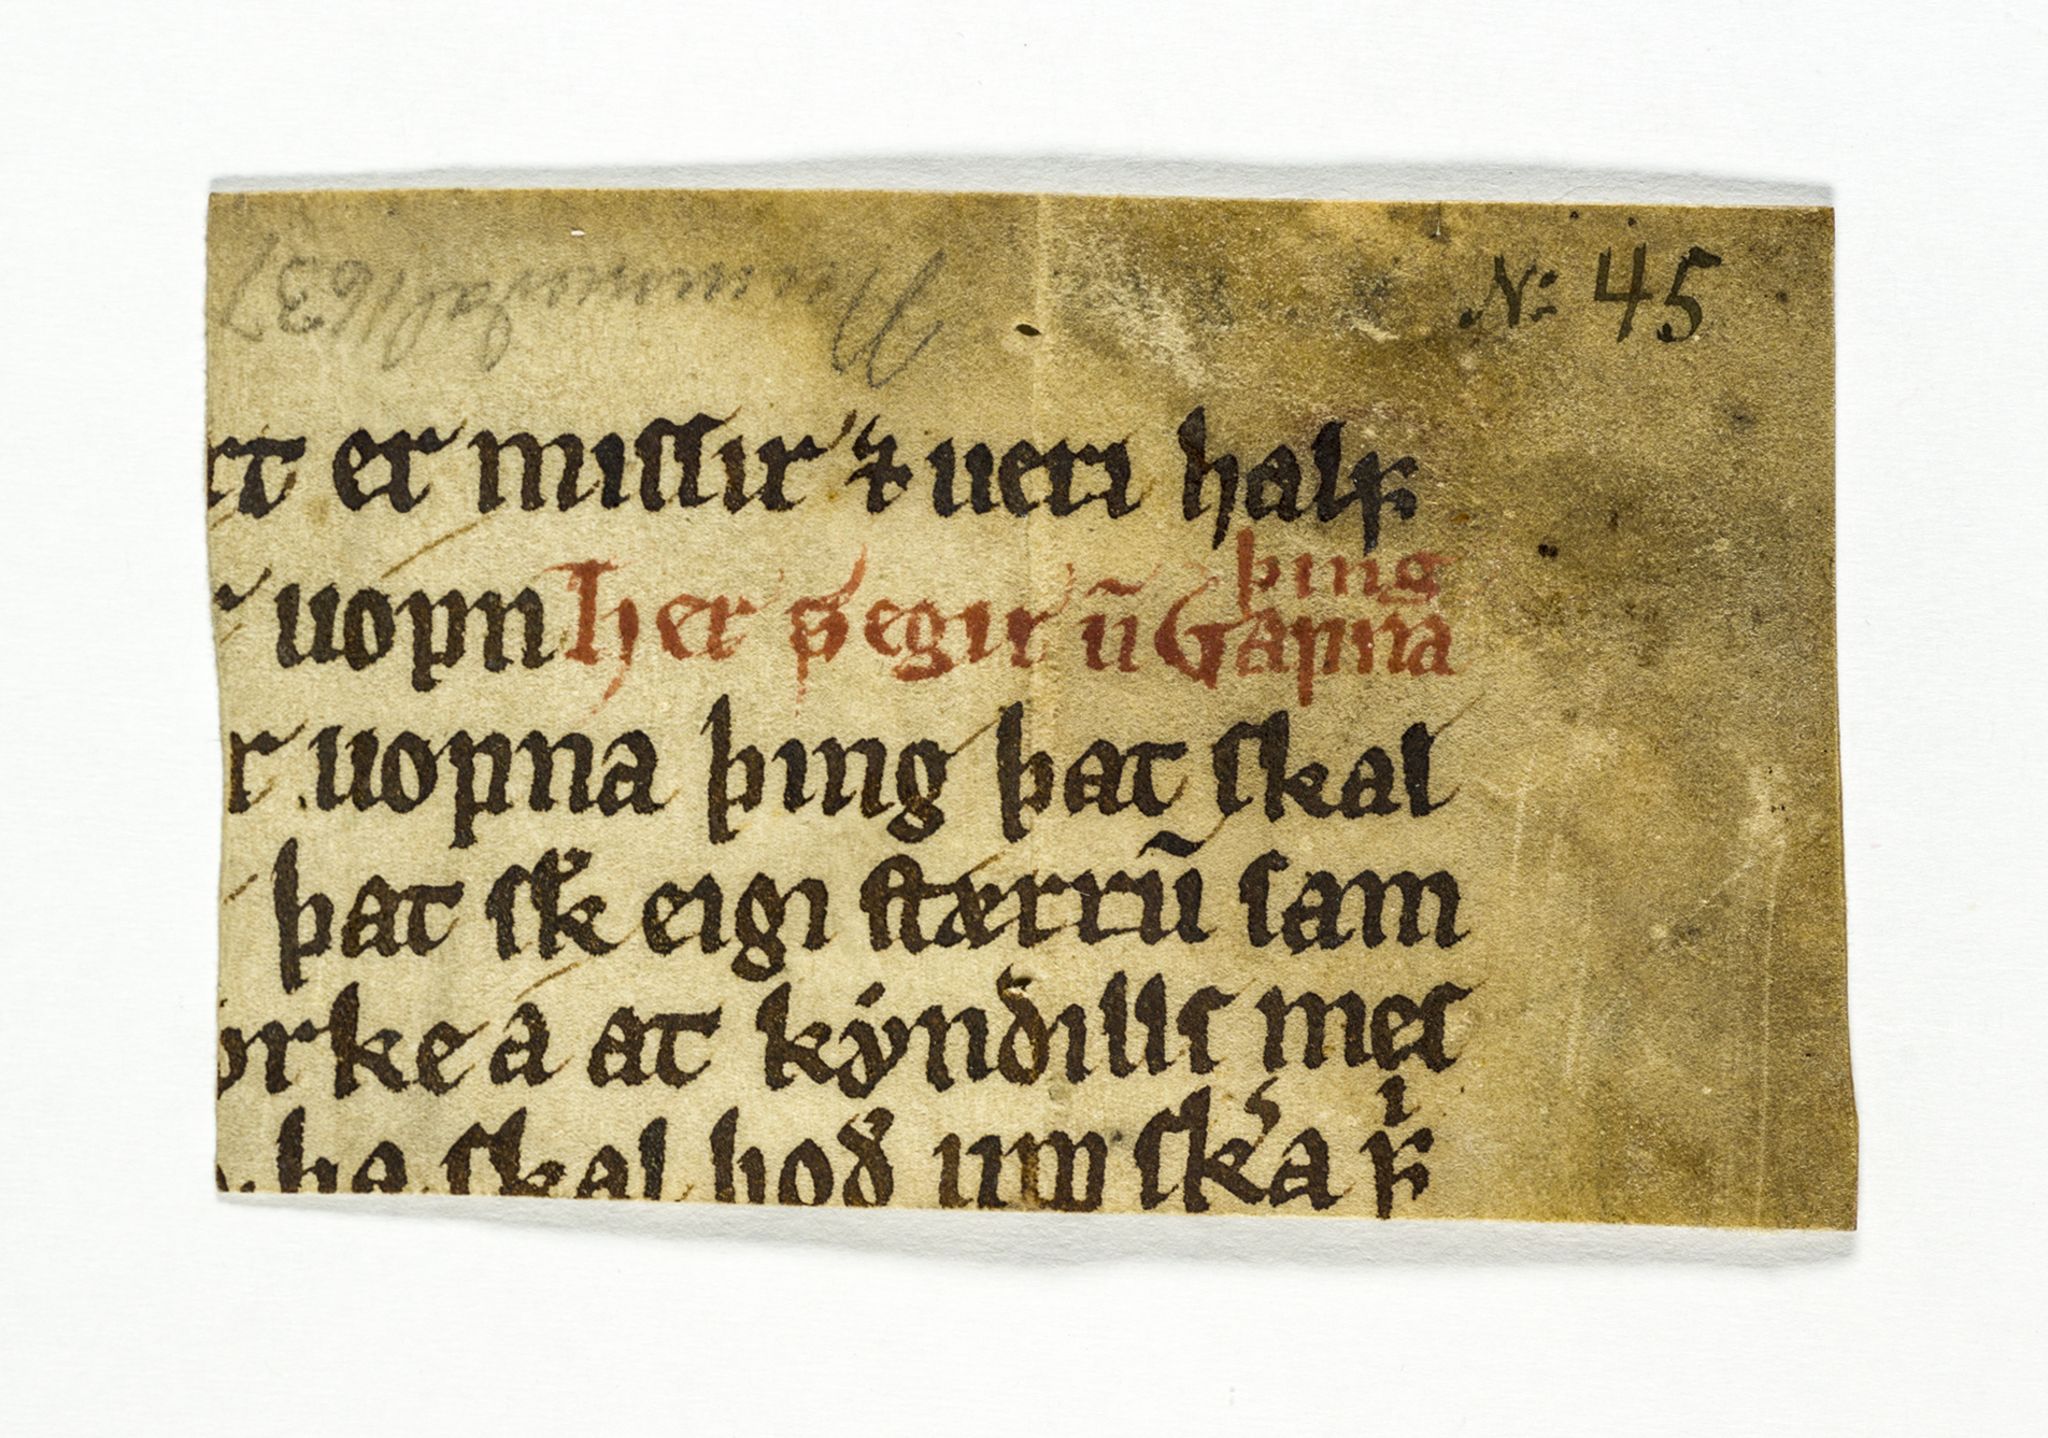 Nummedal 1637
No: 45
rt er miſſir ⁊ ueri halꝼ
r uopn her ꝼegir ū Gapna þing
r uopna þing þat ſkal
þat ſk̄ eigi ſtærrū ſam
orke a at kynðills meſ
ha ſkal hoð um ſka